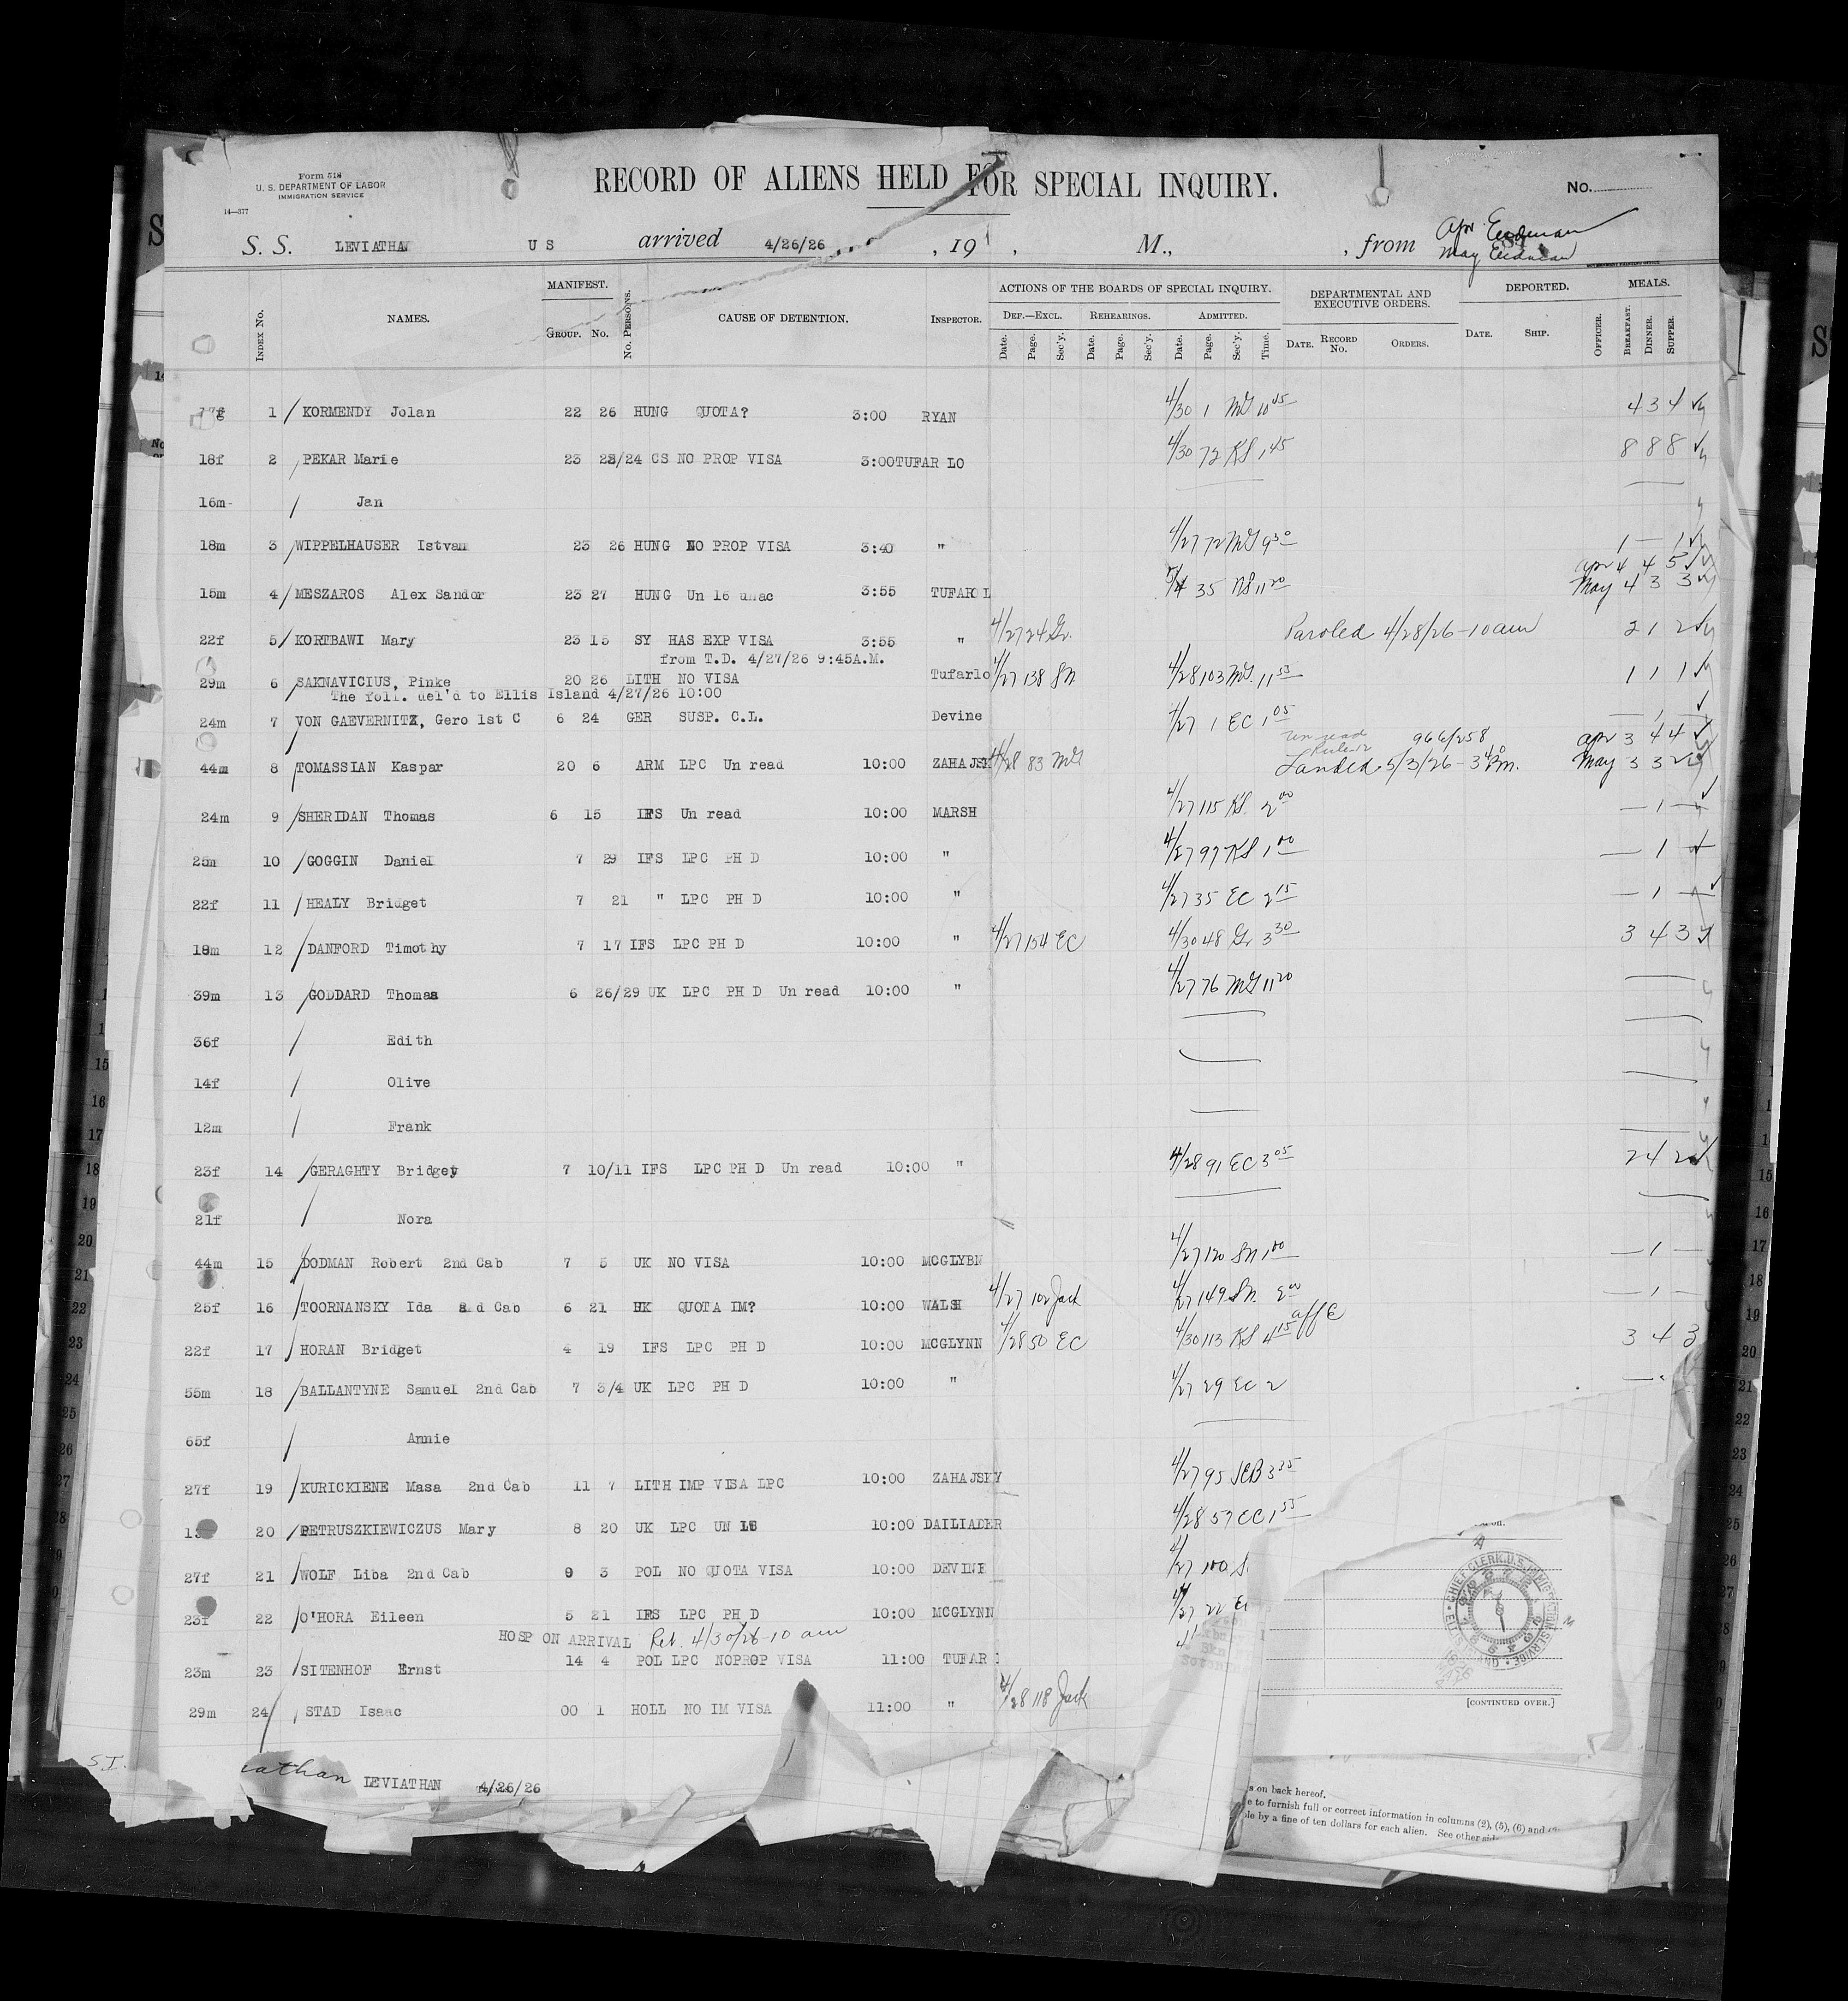 Form 518
U. S. DEPARTMENT OF LABOR
IMMIGRATION SERVICE
14—377
RECORD OF ALIENS HELD FOR SPECIAL INQUIRY.
No.
S. S. LEVIATHAN U S arrived 4/26/26 , 19 , M., , from
INDEX No. NAMES. MANIFEST. GROUP. No. No. PERSONS. CAUSE OF DETENTION. INSPECTOR.
ACTIONS OF THE BOARDS OF SPECIAL INQUIRY. DEF.—EXCL. REHEARINGS. ADMITTED.
Date. Page. Sec'y. Date. Page. Sec'y. Date. Page. Sec'y. Time.
DEPARTMENTAL AND EXECUTIVE ORDERS. DATE. RECORD No. ORDERS.
DEPORTED. DATE. SHIP. OFFICER.
MEALS. BREAKFAST. DINNER. SUPPER.
17f 1 KORMENDY Jolan 22 26 HUNG QUOTA? 3:00 RYAN 4/30 1 MG 10 45 4 3 4
18f 2 PEKAR Marie 23 23/24 CS NO PROP VISA 3:00 TUFAR LO 4/30 72 KS 1 45 8 8 8
16m Jan
18m 3 WIPPELHAUSER Istvan 23 26 HUNG NO PROP VISA 3:40 " 4/27 72 MG 9 30 1 — 1
15m 4 MESZAROS Alex Sandor 23 27 HUNG Un 16 unac 3:55 TUFARO L 5/4 35 NS 11 20 Apr 4 4 5
May 4 3 3
22f 5 KORTBAWI Mary 23 15 SY HAS EXP VISA 3:55 " 4/27 24 Gr. Paroled 4/28/26-10am 2 1 2
from T.D. 4/27/26 9:45A.M.
29m 6 SAKNAVICIUS, Pinke 20 26 LITH NO VISA Tufarlo 4/27 138 SN 4/28 103 MG 11 55 1 1 1
The foll. del'd to Ellis Island 4/27/26 10:00
24m 7 VON GAEVERNITZ, Gero 1st C 6 24 GER SUSP. C.L. Devine 4/27 1 EC 1 05 — 1 —
44m 8 TOMASSIAN Kaspar 20 6 ARM LPC Un read 10:00 ZAHAJSK 4/28 83 MG Landed 5/3/26 - 3 40 Pm. Apr 3 4 4
May 3 3 2
24m 9 SHERIDAN Thomas 6 15 IFS Un read 10:00 MARSH 4/27 115 KS. 2 00 — 1 —
25m 10 GOGGIN Daniel 7 29 IFS LPC PH D 10:00 " 4/27 97 KS 1 00 — 1 —
22f 11 HEALY Bridget 7 21 " LPC PH D 10:00 " 4/27 35 EC 2 15 — 1 —
18m 12 DANFORD Timothy 7 17 IFS LPC PH D 10:00 " 4/27 154 EC 4/30 48 Gr 3 30 3 4 3
39m 13 GODDARD Thomas 6 26/29 UK LPC PH D Un read 10:00 " 4/27 76 MG 11 20
36f Edith
14f Olive
12m Frank
23f 14 GERAGHTY Bridget 7 10/11 IFS LPC PH D Un read 10:00 " 4/28 91 EC 3 05 2 4 2
21f Nora
44m 15 DODMAN Robert 2nd Cab 7 5 UK NO VISA 10:00 MCGLYBN 4/27 120 SN 1 00 — 1 —
25f 16 TOORNANSKY Ida 2nd Cab 6 21 UK QUOTA IM? 10:00 WALSH 4/27 102 Jack 4/27 149 SN. 2 00 — 1 —
22f 17 HORAN Bridget 4 19 IFS LPC PH D 10:00 MCGLYNN 4/28 50 EC 4/30 113 KS 4 15 3 4 3
55m 18 BALLANTYNE Samuel 2nd Cab 7 3/4 UK LPC PH D 10:00 " 4/27 29 EC 2
65f Annie
27f 19 KURICKIENE Masa 2nd Cab 11 7 LITH IMP VISA LPC 10:00 ZAHAJSKY 4/27 95 SEB 3 35
20 PETRUSZKIEWICZUS Mary 8 20 UK LPC UN 10:00 DAILIADER 4/28 57 EC 1 55
27f 21 WOLF Liba 2nd Cab 9 3 POL NO QUOTA VISA 10:00 DEVINE 4/27 100 S
23f 22 O'HORA Eileen 5 21 IFS LPC PH D 10:00 MCGLYNN 4/27 22 EC
HOSP ON ARRIVAL Rel. 4/30/26-10 am
23m 23 SITENHOF Ernst 14 4 POL LPC NOPROP VISA 11:00 TUFAR
29m 24 STAD Isaac 00 1 HOLL NO IM VISA 11:00 " 4/28 118 Jack
[CONTINUED OVER.]
S.I.
iathan LEVIATHAN 4/26/26
s on back hereof.
e to furnish full or correct information in columns (2), (5), (6) and
ble by a fine of ten dollars for each alien. See other sid